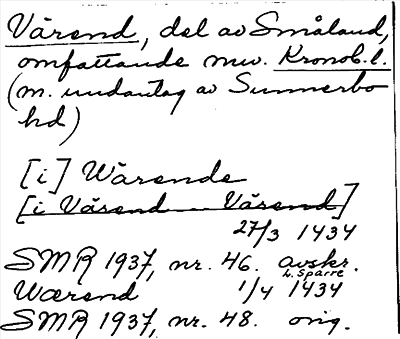 Värend, del av Småland,
omfattande nuv. Kronob. l.
(m. undantag av Sunnerbo
hd)
[i] Wärende
[i Värend - - Värend]
27/3 1434
SMR 1937, nr. 46. avskr.
L. Sparre
Wærend 1/4 1434
SMR 1937, nr. 48. orig.